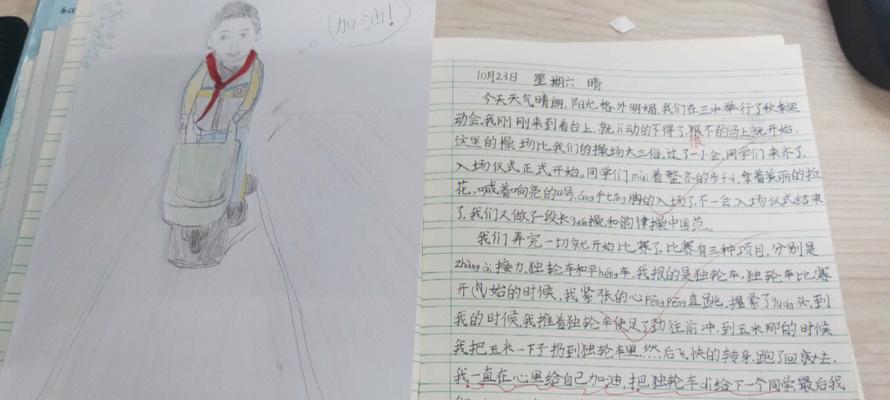 加油!
10月23日 星期六 晴
今天天气晴朗,阳光格外明媚,我们在三中举行了秋季运
动会,我刚刚来到看台上,就儿动的不得了,狠不的马上就开始,
恨
这里的操场比我们的操场大三倍,过了一小会,同学们来齐了,
入场仪式正式开始。同学们mài着整齐的步fá,拿着美丽的拉
花,喊着响亮的口号,áng千tǐng胸的入场了,不一会,入场仪式结束
了,我们又做了一段长shén操和韵律操中国范。
我们弄完一切就开始比赛了,比赛有三种项目,分别是
zhàng ài接力,独轮车和平héng车,我报的是独轮车,独轮车比赛
开始的时候,我紧张的心pēng pēng直跳,握紧了quán头,到
我的时候,我推着独轮车使足了劲往前冲,到玉米那的时候
我把玉米一下子扔到独轮车里,然后飞快的转身,跑了回去,
我一直在心里给自己加油,把独轮车di给下一个同学,最后我